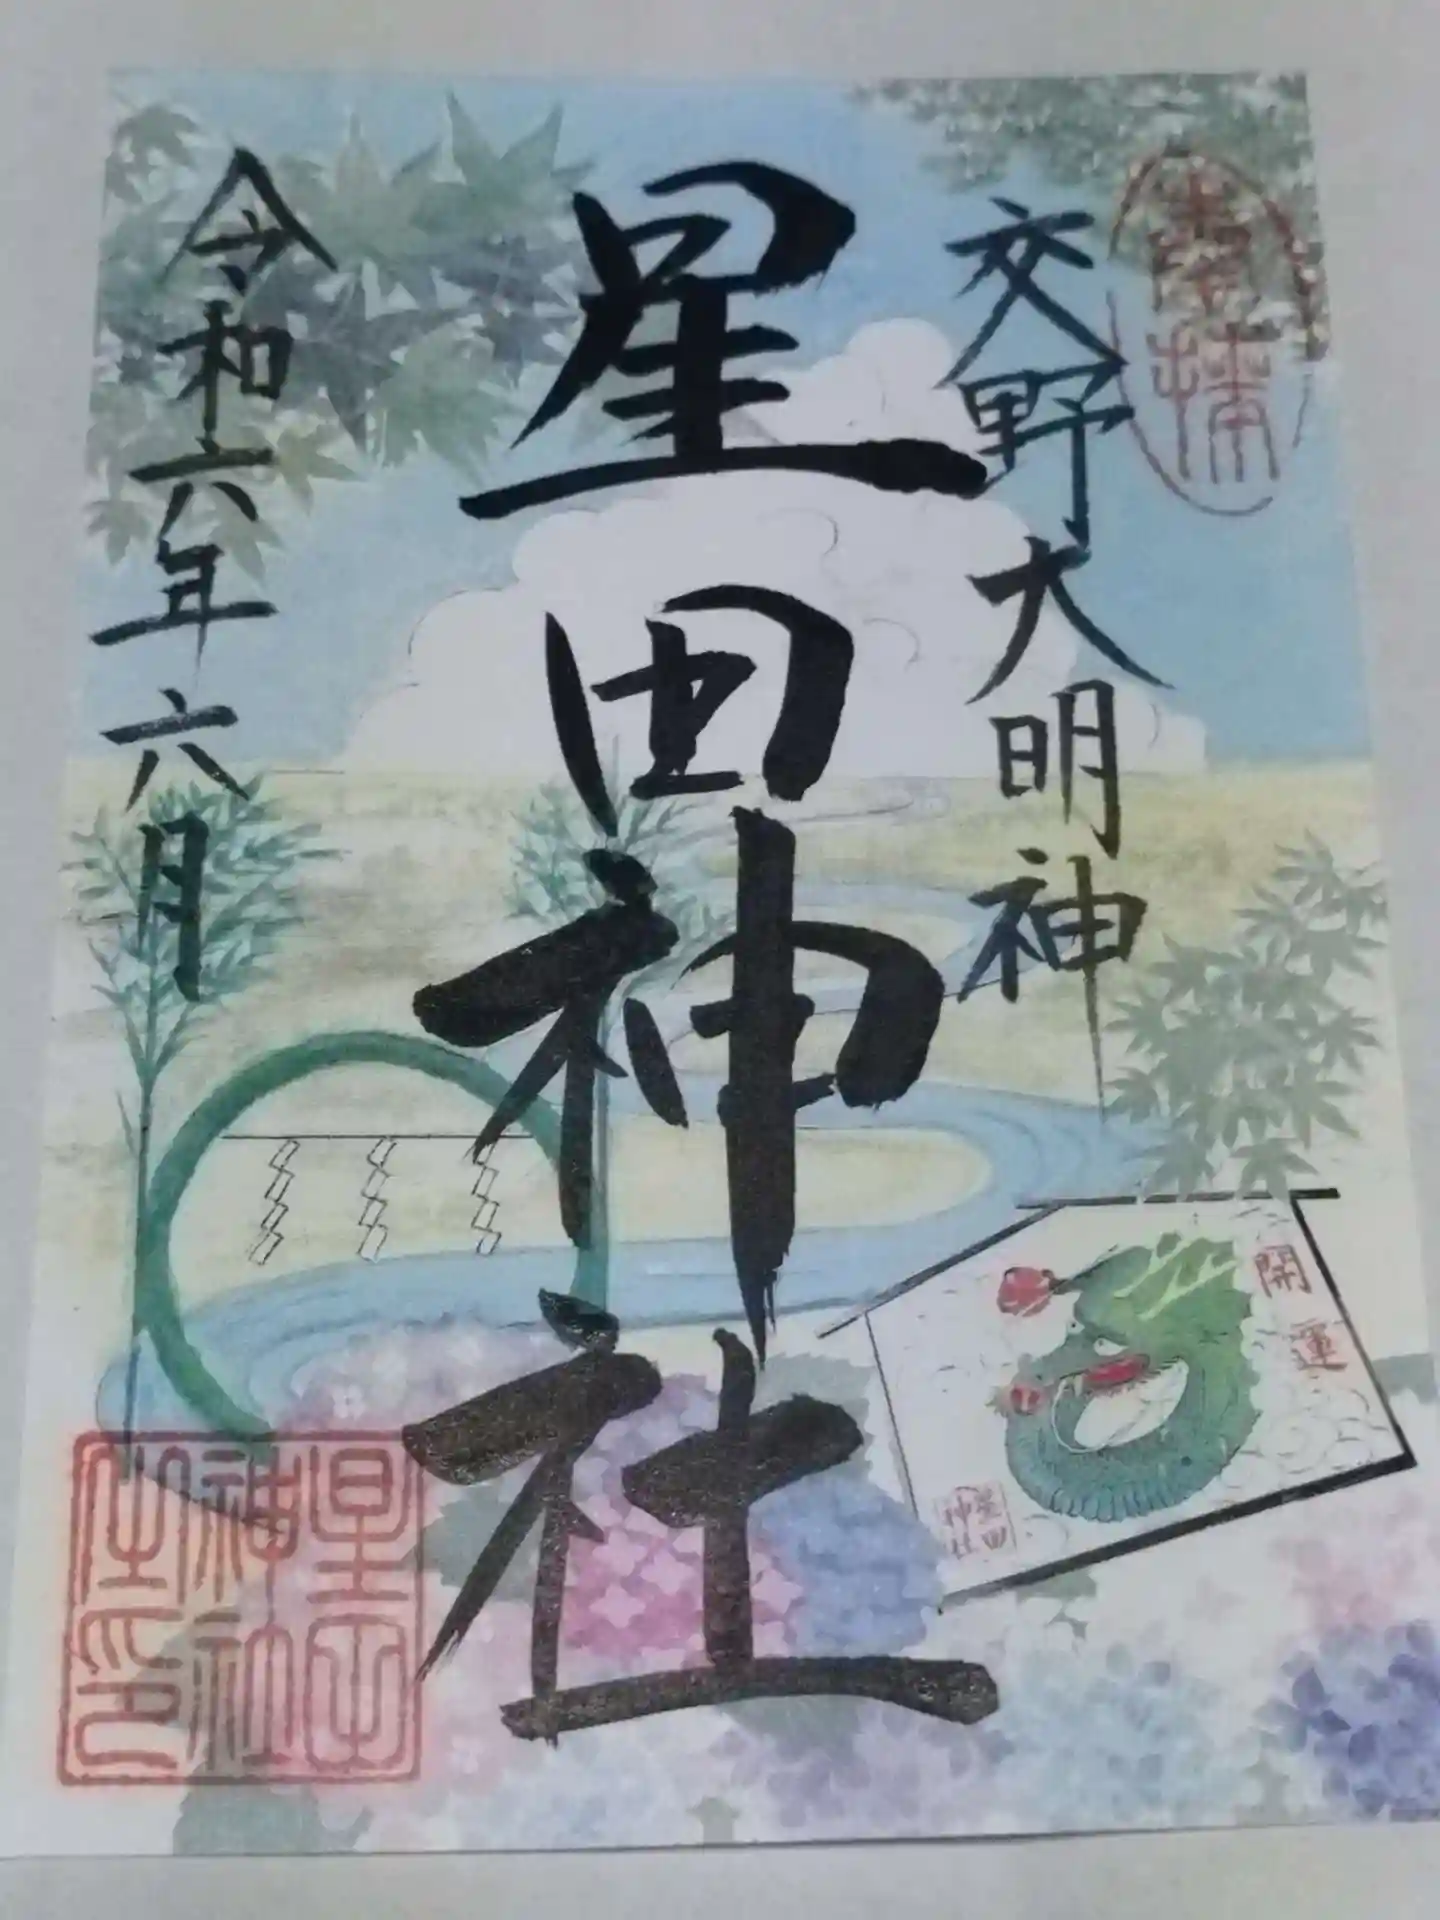 奉拝
交野大明神
星田神社
令和六年六月
開運
星田
神社
星田
神社
之印